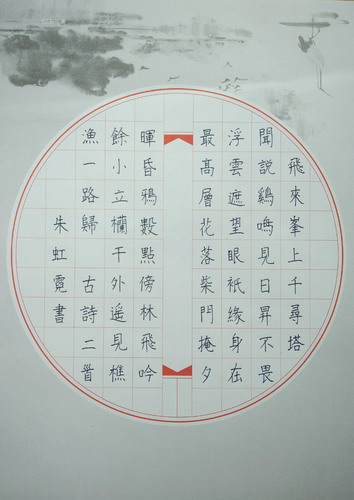 飛來峯上千尋塔
聞說鷄鳴見日昇不畏
浮雲遮望眼衹緣身在
最髙層花落柴門掩夕
暉昏鴉數點傍林飛吟
餘小立欄干外遥見樵
漁一路歸 古詩二首
朱虹霓書